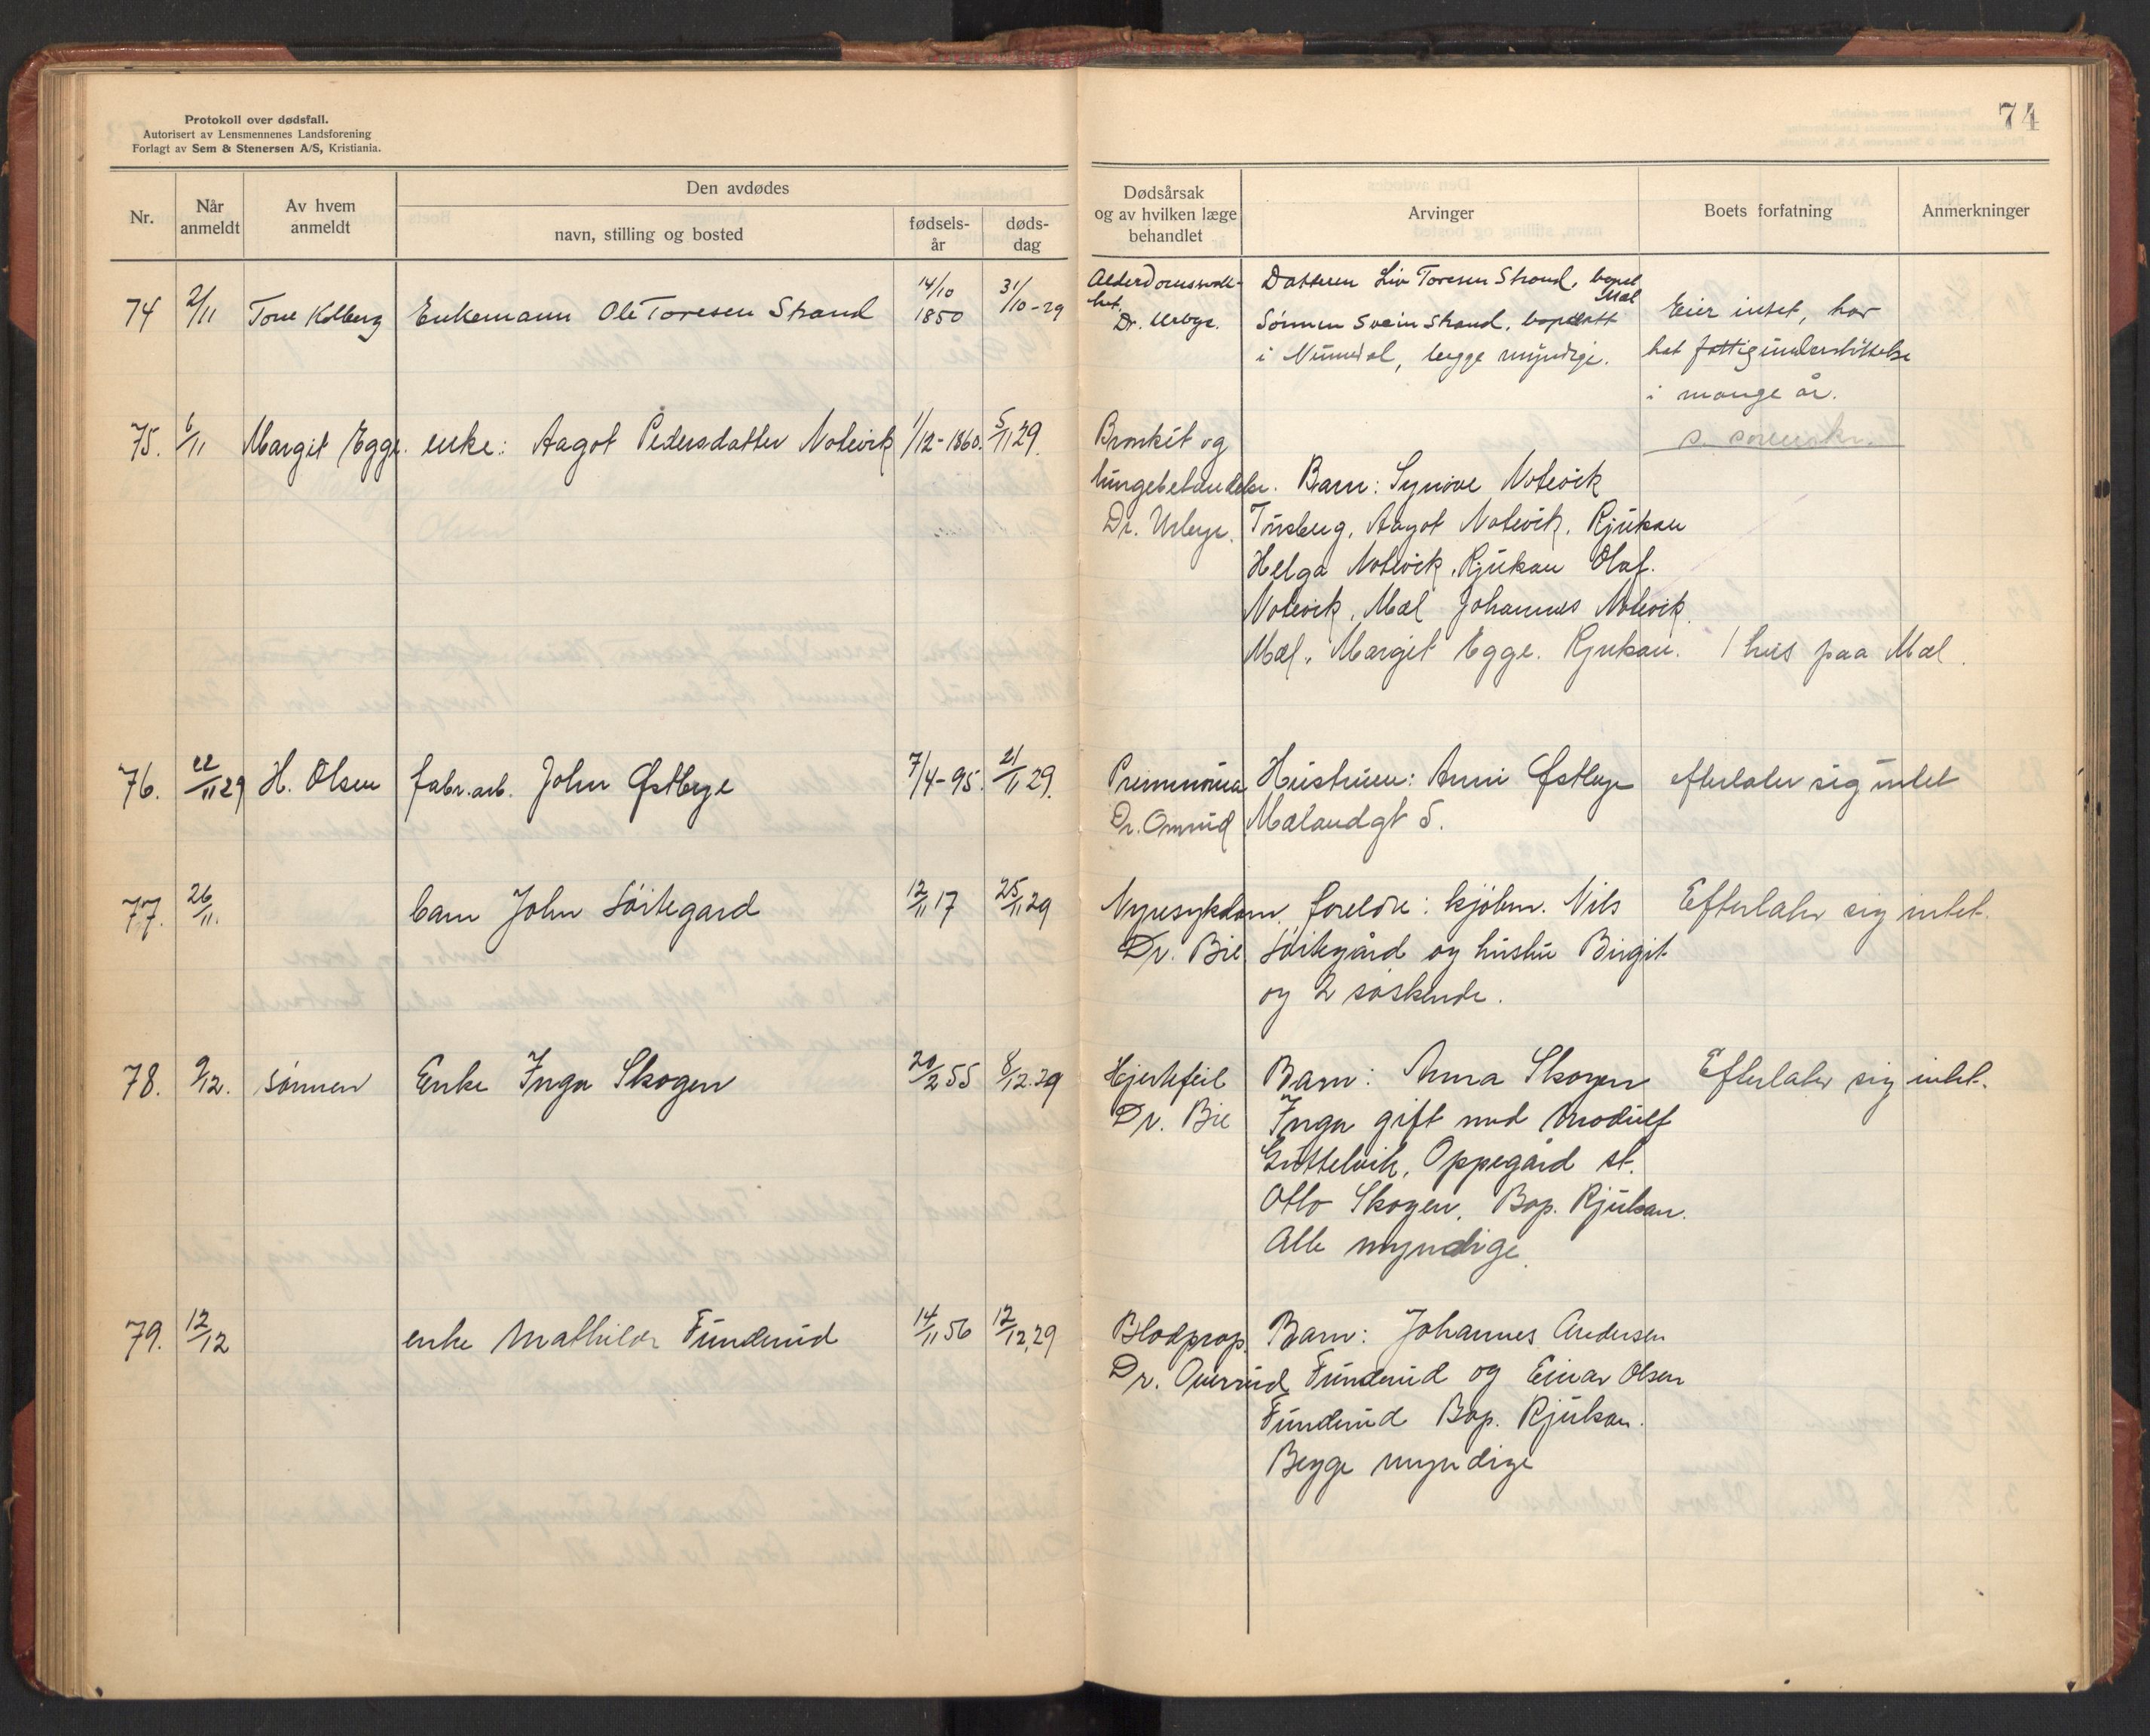 Protokoll over dødsfall.
Autorisert av Lensmennenes Landsforening
Forlagt av Sem & Stenersen A/S, Kristiania.
74
Nr.
Når anmeldt
Av hvem anmeldt
Den avdødes
navn, stilling og bosted
fødsels-år
døds-dag
Dødsårsak og av hvilken læge behandlet
Arvinger
Boets forfatning
Anmerkninger
74 2/11 Tone Kolberg Enkemann Ole Toresen Strand 14/10 1850 31/10-29
Alderdomssvak-
het.
Dr. Urbye.
Datteren Liv Toresen Strand, bopel Mæl
Sønnen Svein Strand, bopelatt
i Numedal, begge myndige.
Eier intet, har
hat fattigunderstøttelse
i mange år.
75. 6/11 Margit Egge. enke: Aagot Pedersdatter Notevik 1/12-1860. 5/11 29.
Bronkit og
lungebetændelse.
Dr. Urbye.
Barn: Synøve Notevik
Tønsberg, Aagot Notevik, Rjukan
Helga Notevik, Rjukan Olaf.
Notevik, Mæl Johannes Notevik.
Mæl, Margit Egge. Rjukan.
1 hus paa Mæl.
76. 22/11 29 H. Olsen fabr.arb. John Østbye 7/4-95. 21/11 29.
Pneumonia
Dr. Omsrud
Hustruen: Anni Østbye
Mælandgt 5.
efterlater sig intet
77. 26/11. barn John Söitegard 12/11 17 25/11 29
Nyresykdom.
Dr. Bie
foreldre: kjöbm. Nils
Söitegård og hustru Birgit
og 2 söskende.
Efterlater sig intet.
78. 9/12. sönnen Enke Inga Skogen 20/2 55 8/12.29
Hjertefeil
Dr. Bie
Barn: Anna Skogen
Inga gift med Modulf
Guttelvik, Oppegård st.
Otto Skogen, Bop. Rjukan.
Alle myndige.
Efterlater sig intet.
79. 12/12 enke Mathilde Funderud 14/11 56 12/12.29
Blodprop.
Dr. Omsrud
Barn: Johannes Andersen
Funderud og Einar Olsen
Funderud Bop. Rjukan.
Begge myndige